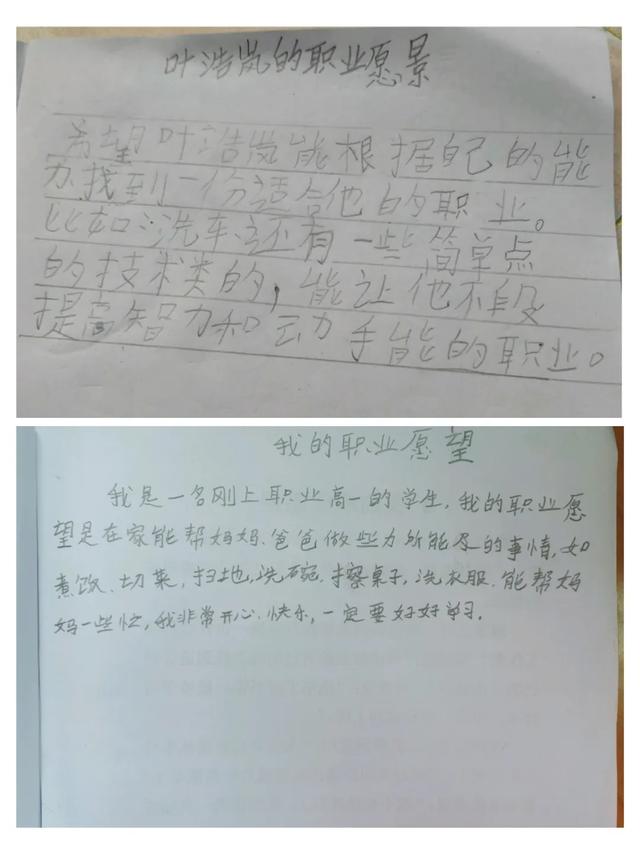 叶浩岚的职业愿景
希望叶浩岚能根据自己的能
力找到一份适合他的职业。
比如:洗车,还有一些简单点
的技术类的,能让他不段
提高智力和动手能的职业。
我的职业愿望
我是一名刚上职业高一的学生,我的职业愿
望是在家能帮妈妈、爸爸做些力所能及的事情,如
煮饭、切菜,扫地,洗碗、擦桌子,洗衣服、能帮妈
妈一些忙,我非常开心、快乐,一定要好好学习。